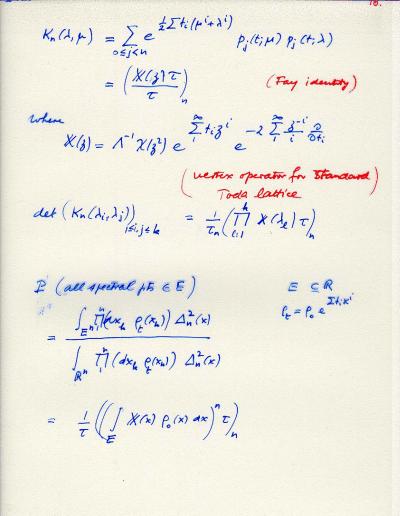 10.
K_n(λ,μ) = ∑_{0≤j<n} e^{½∑t_i(μ^i+λ^i)} p_j(t,μ) p_j(t,λ)
= (X(z)τ / τ)_n (Fay identity)
where
X(z) = Λ^{-1} χ(z²) e^{∑_1^∞ t_i z^i} e^{-2∑_1^∞ z^{-i}/i ∂/∂t_i}
(vertex operator for Standard
Toda lattice)
det(K_n(λ_i,λ_j))_{1≤i,j≤k} = 1/τ_n (∏_{l=1}^k X(λ_l)τ)_n
P(all spectral pts ∈ E) E ⊆ ℝ
ρ_t = ρ_0 e^{∑t_i x^i}
= ∫_{E^n} ∏_1^n(dx_k ρ_t(x_k)) Δ_n²(x) / ∫_{ℝ^n} ∏_1^n(dx_k ρ_t(x_k)) Δ_n²(x)
= 1/τ ((∫_E X(x) ρ_0(x) dx)^n τ)_n